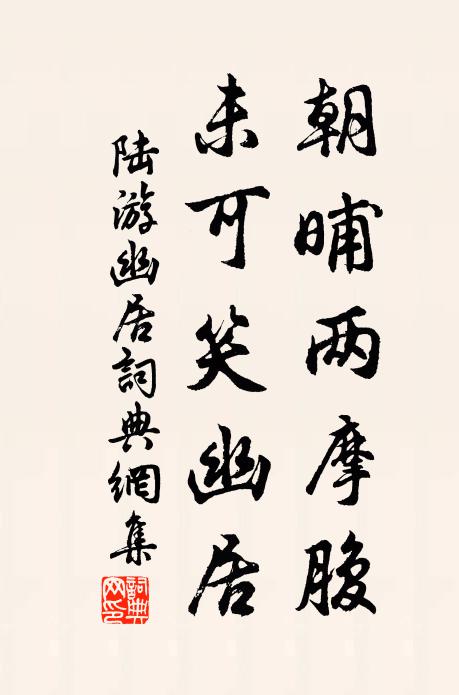 朝晡两摩腹
未可笑幽居
陆游幽居詞典網集
詞典网印